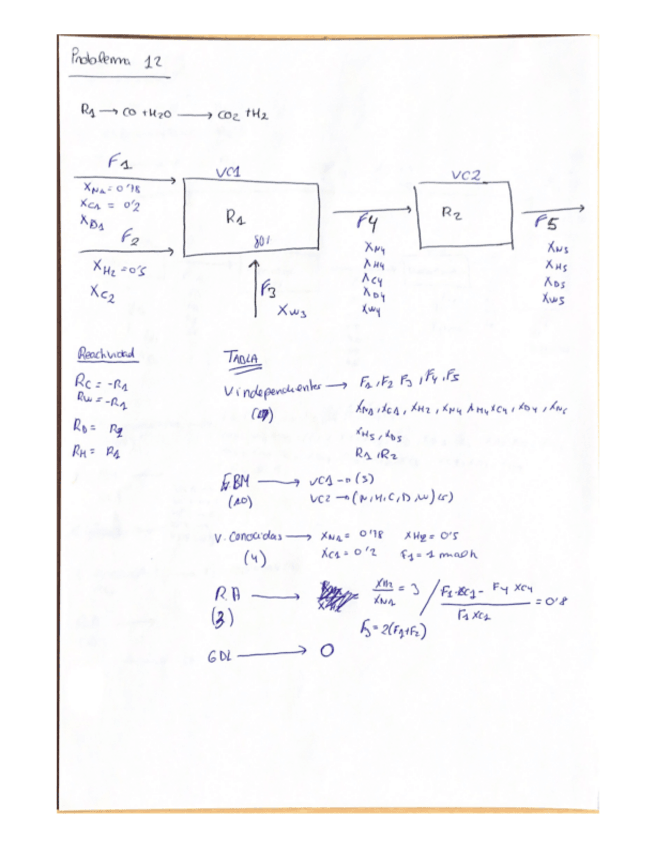 Problema 12
R1 → CO + H2O → CO2 + H2
F1
XN1 = 0'78
XC1 = 0'2
XD1
F2
XH2 = 0'5
XC2
VC1
R1
80%
F3
XW3
F4
XN4
XH4
XC4
XD4
XW4
VC2
R2
F5
XN5
XH5
XD5
XW5
Reactividad
RC = -R1
RW = -R1
RD = R1
RH = R1
TABLA
V independientes → F1, F2 F3, F4, F5
(17)
XN1, XC1, XH2, XN4 XH4 XC4, XD4, XN5
XH5, XD5
R1, R2
EBM → VC1 → (5)
(10) VC2 → (N, H, C, D, W) (5)
V. Conocidas → XN1 = 0'78 XH2 = 0'5
(4) XC1 = 0'2 F1 = 1 mol/h
RA → = 3 / F1·XC1 - F4 XC4 / F1 XC1 = 0'8
(3) F3 = 2(F1+F2)
GDL → 0